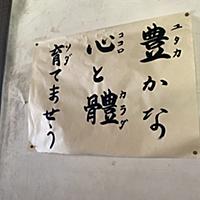 豊かな
ユタカ
心と體
ココロ
カラダ
育てませう
ソダ